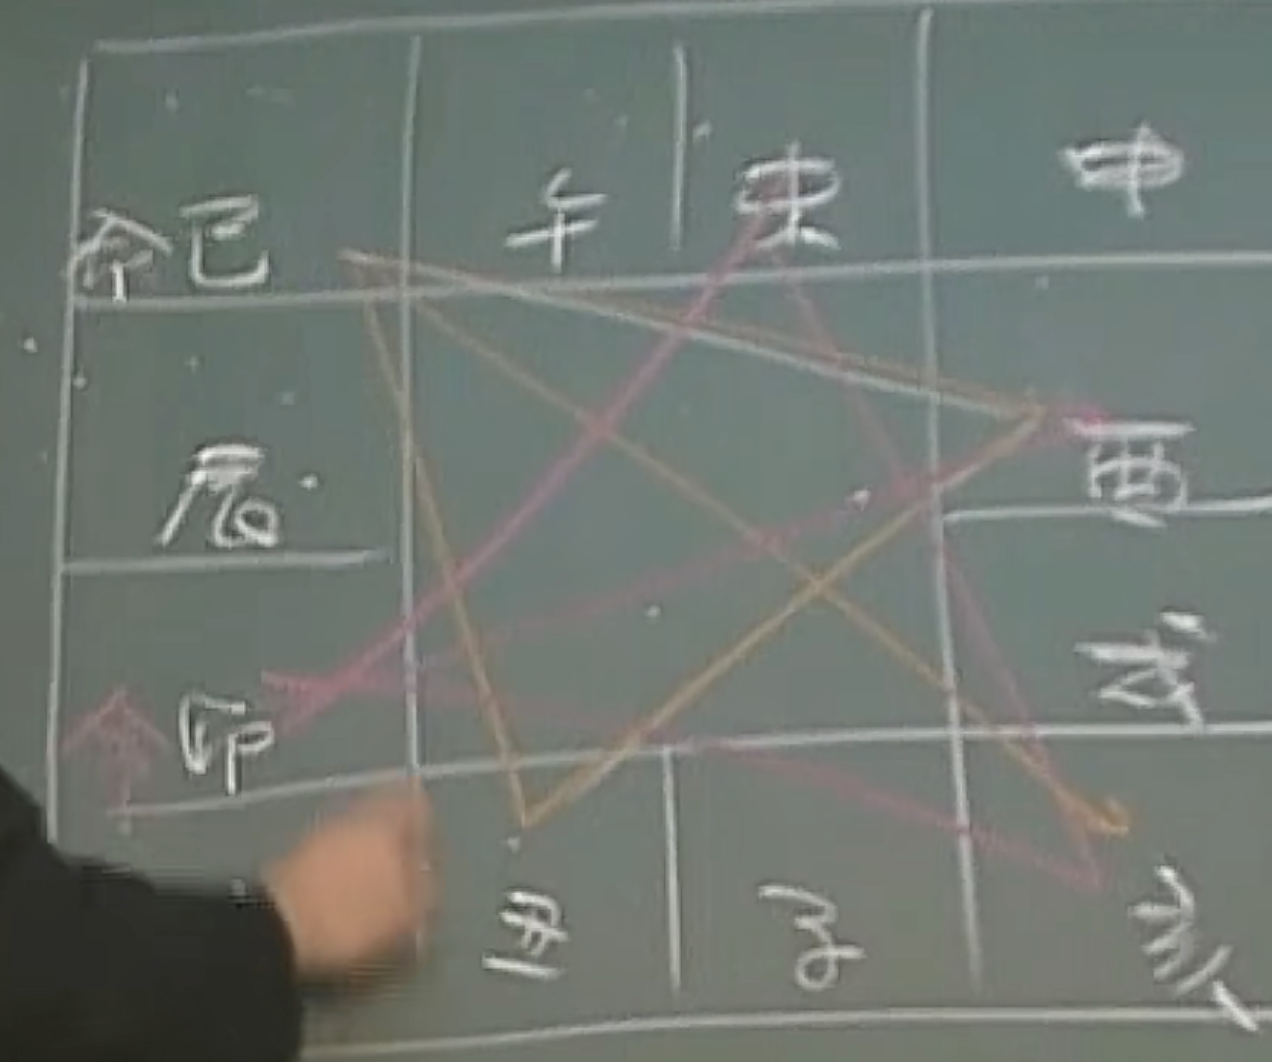 命 巳 午 未 申
辰 酉
卯 戌
丑 子 亥